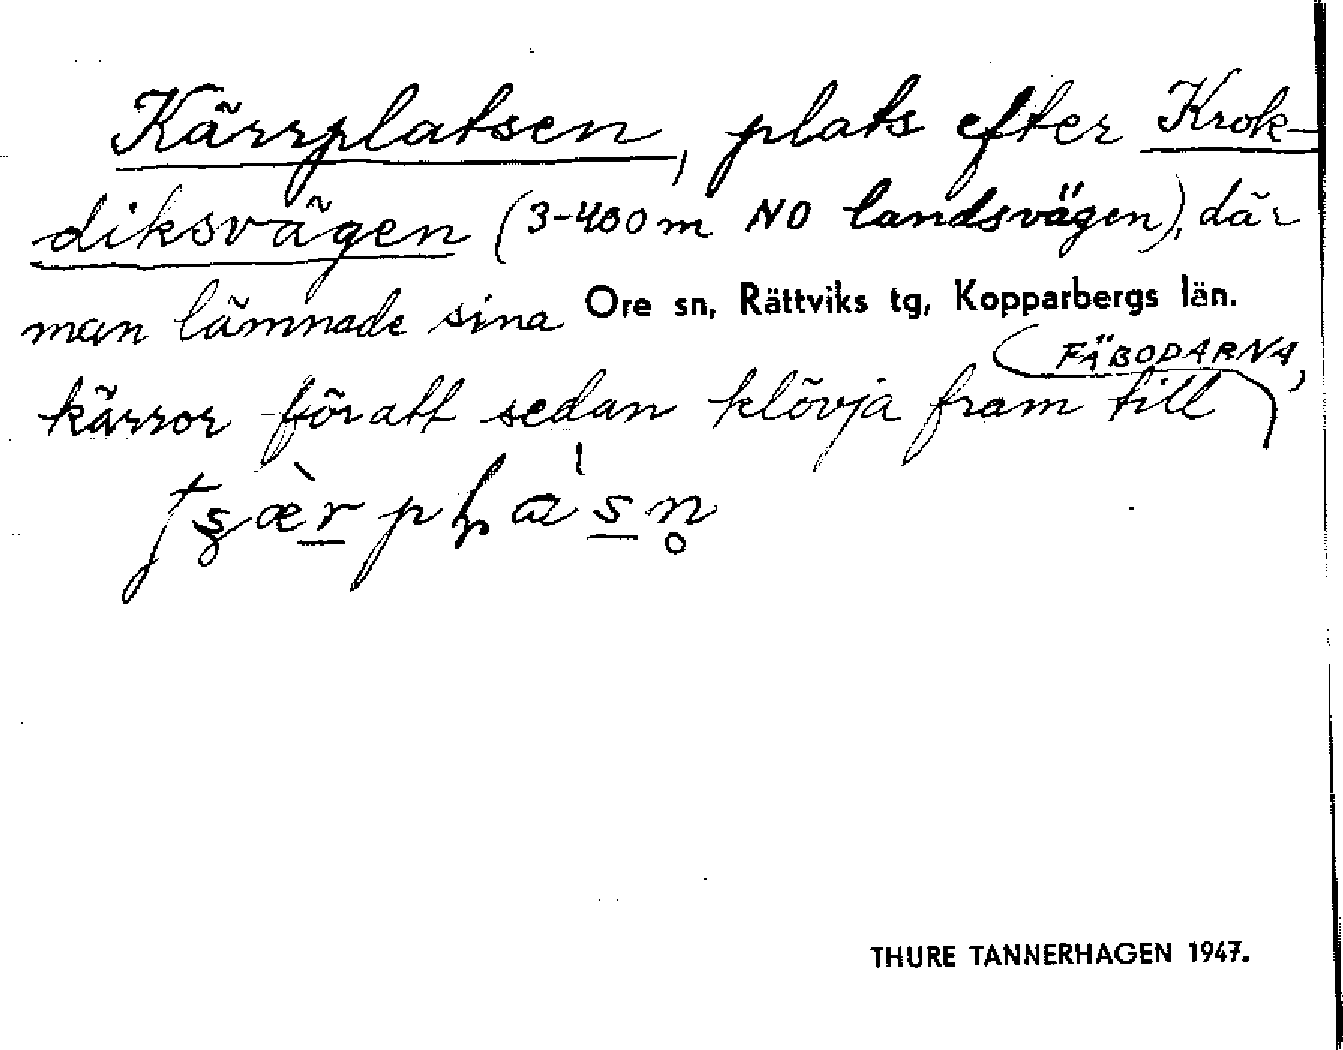 Kärrplatsen, plats efter Krok-
diksvägen (3-400 m NO landsvägen), där
man lämnade sina
Ore sn, Rättviks tg, Kopparbergs län.
kärror för att sedan klövja fram till
FÄBODARNA,
THURE TANNERHAGEN 1947.